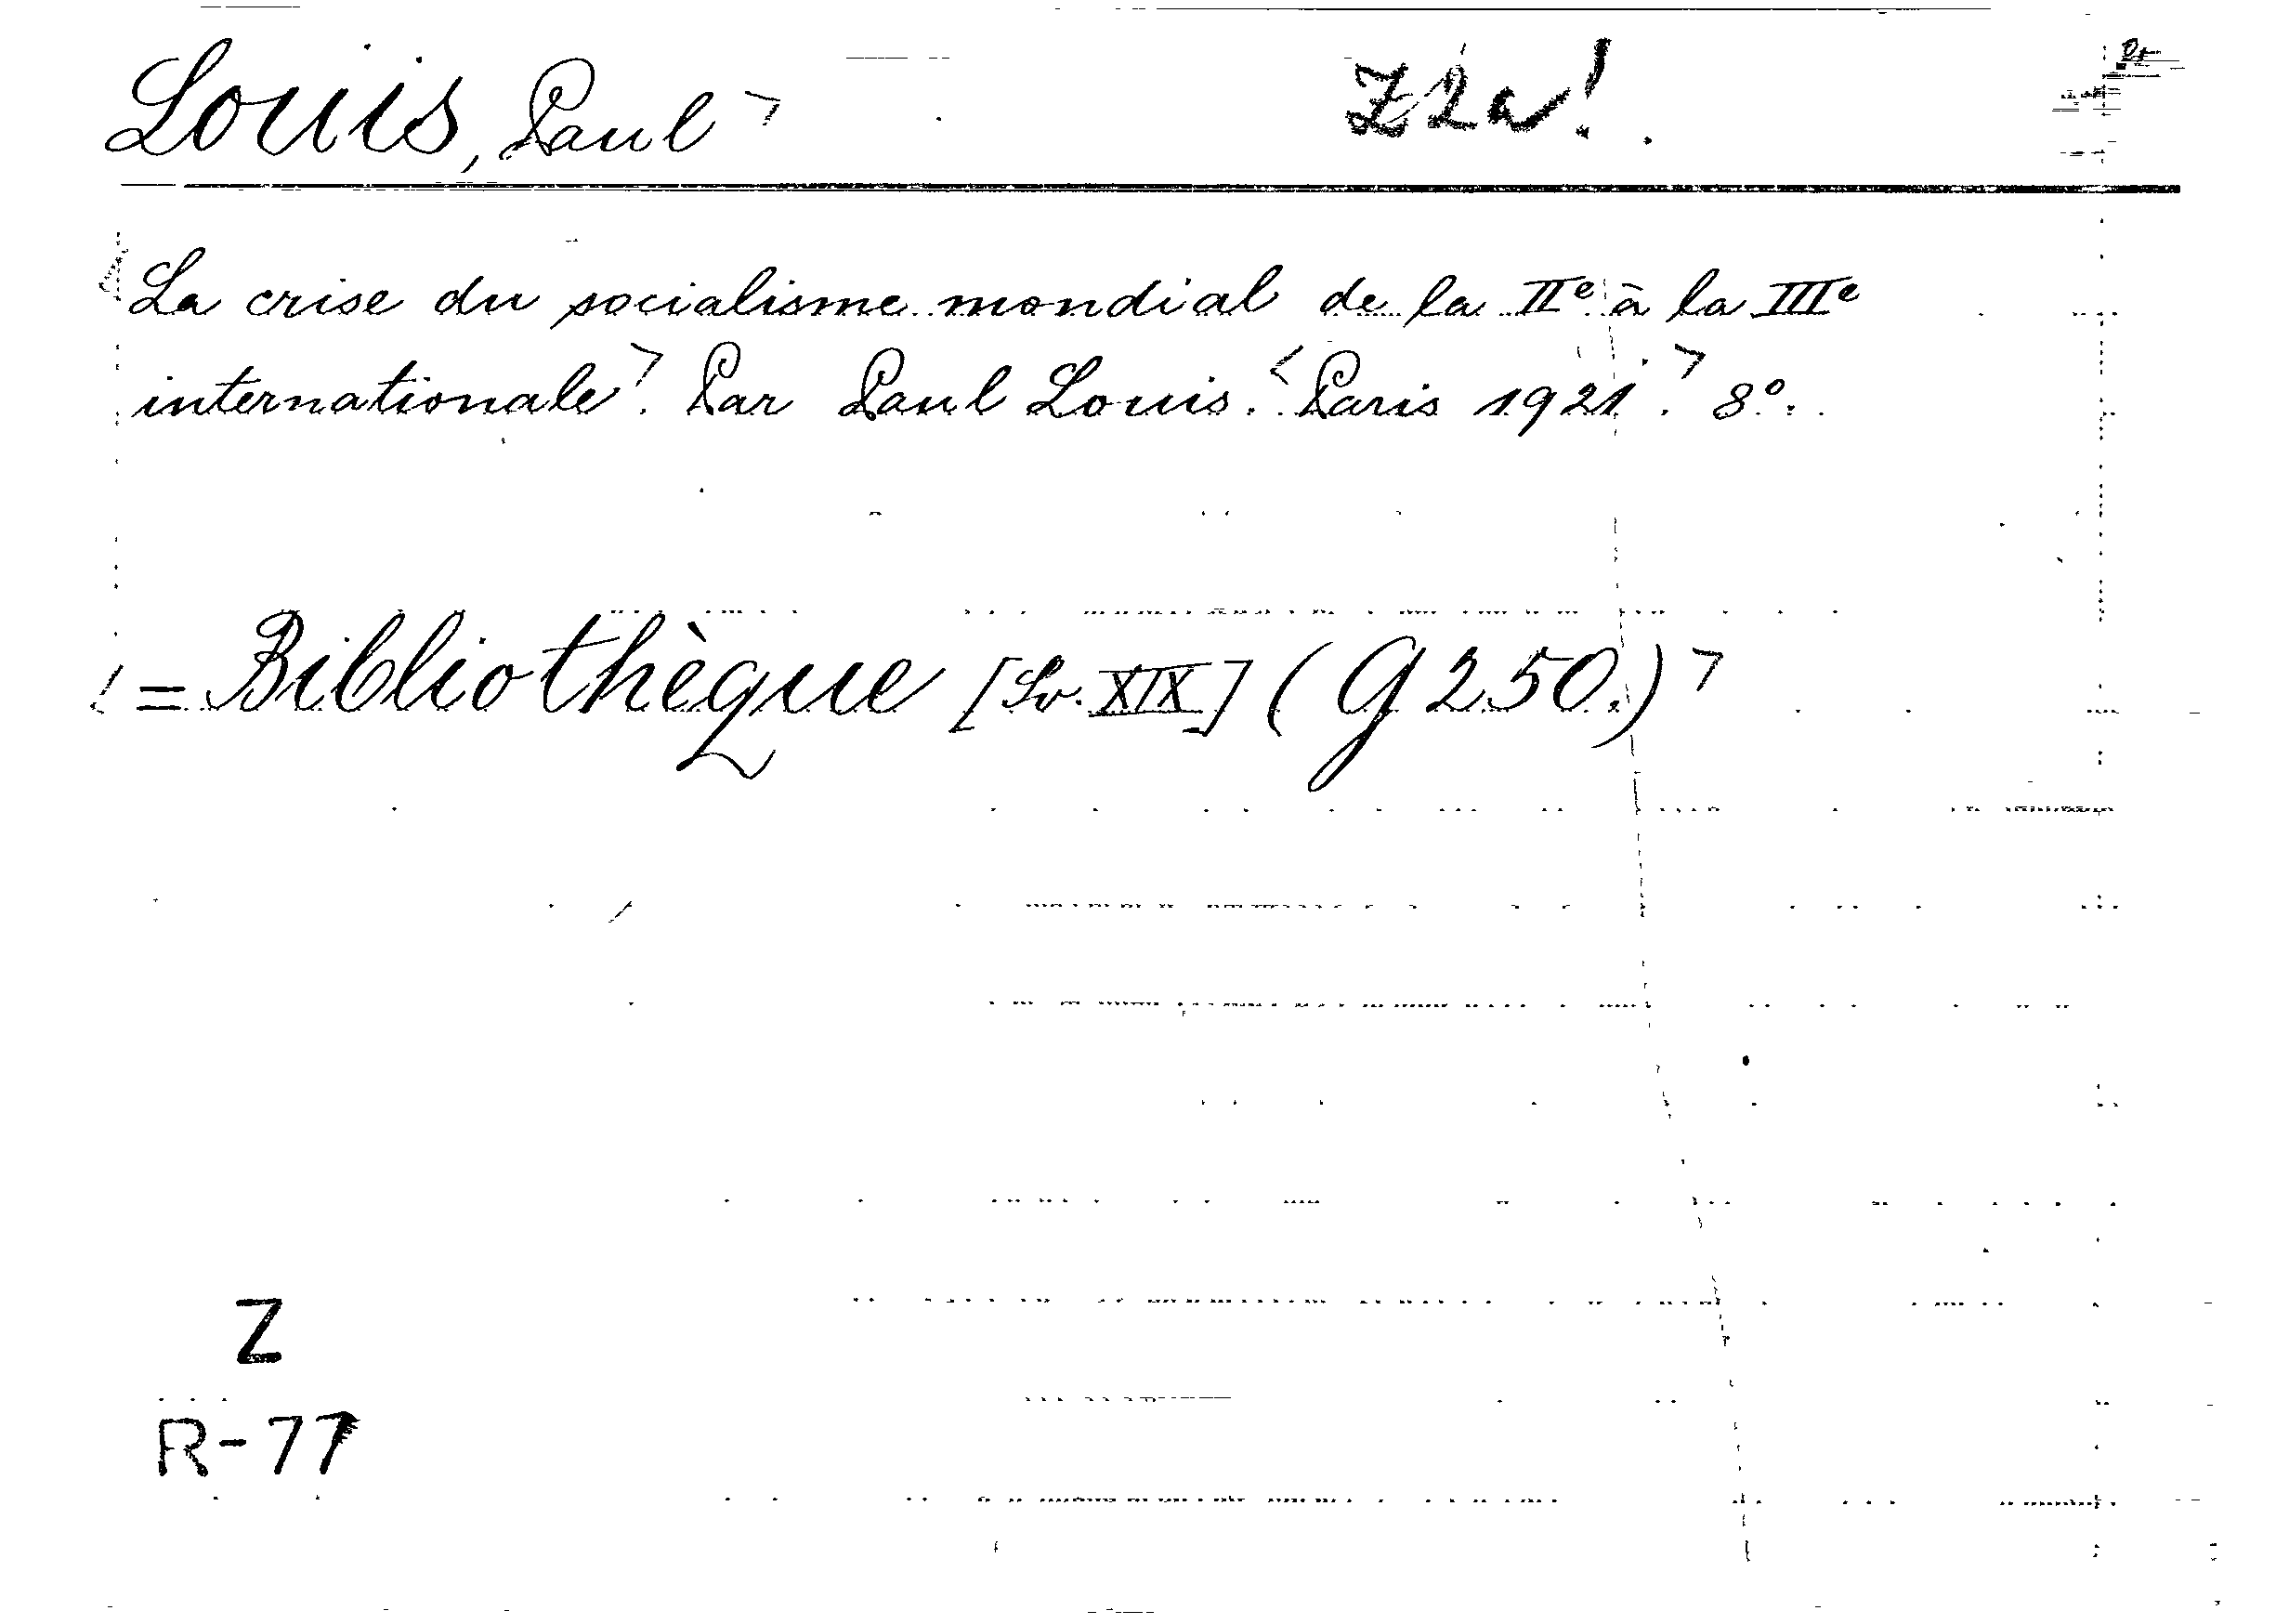 Louis, Paul Z2a!
La crise du socialisme mondial de la IIe à la IIIe
internationale. Par Paul Louis. Paris 1921. 8º.
= Bibliothèque [Sv. XIX] (G 250.)
Z
R-77